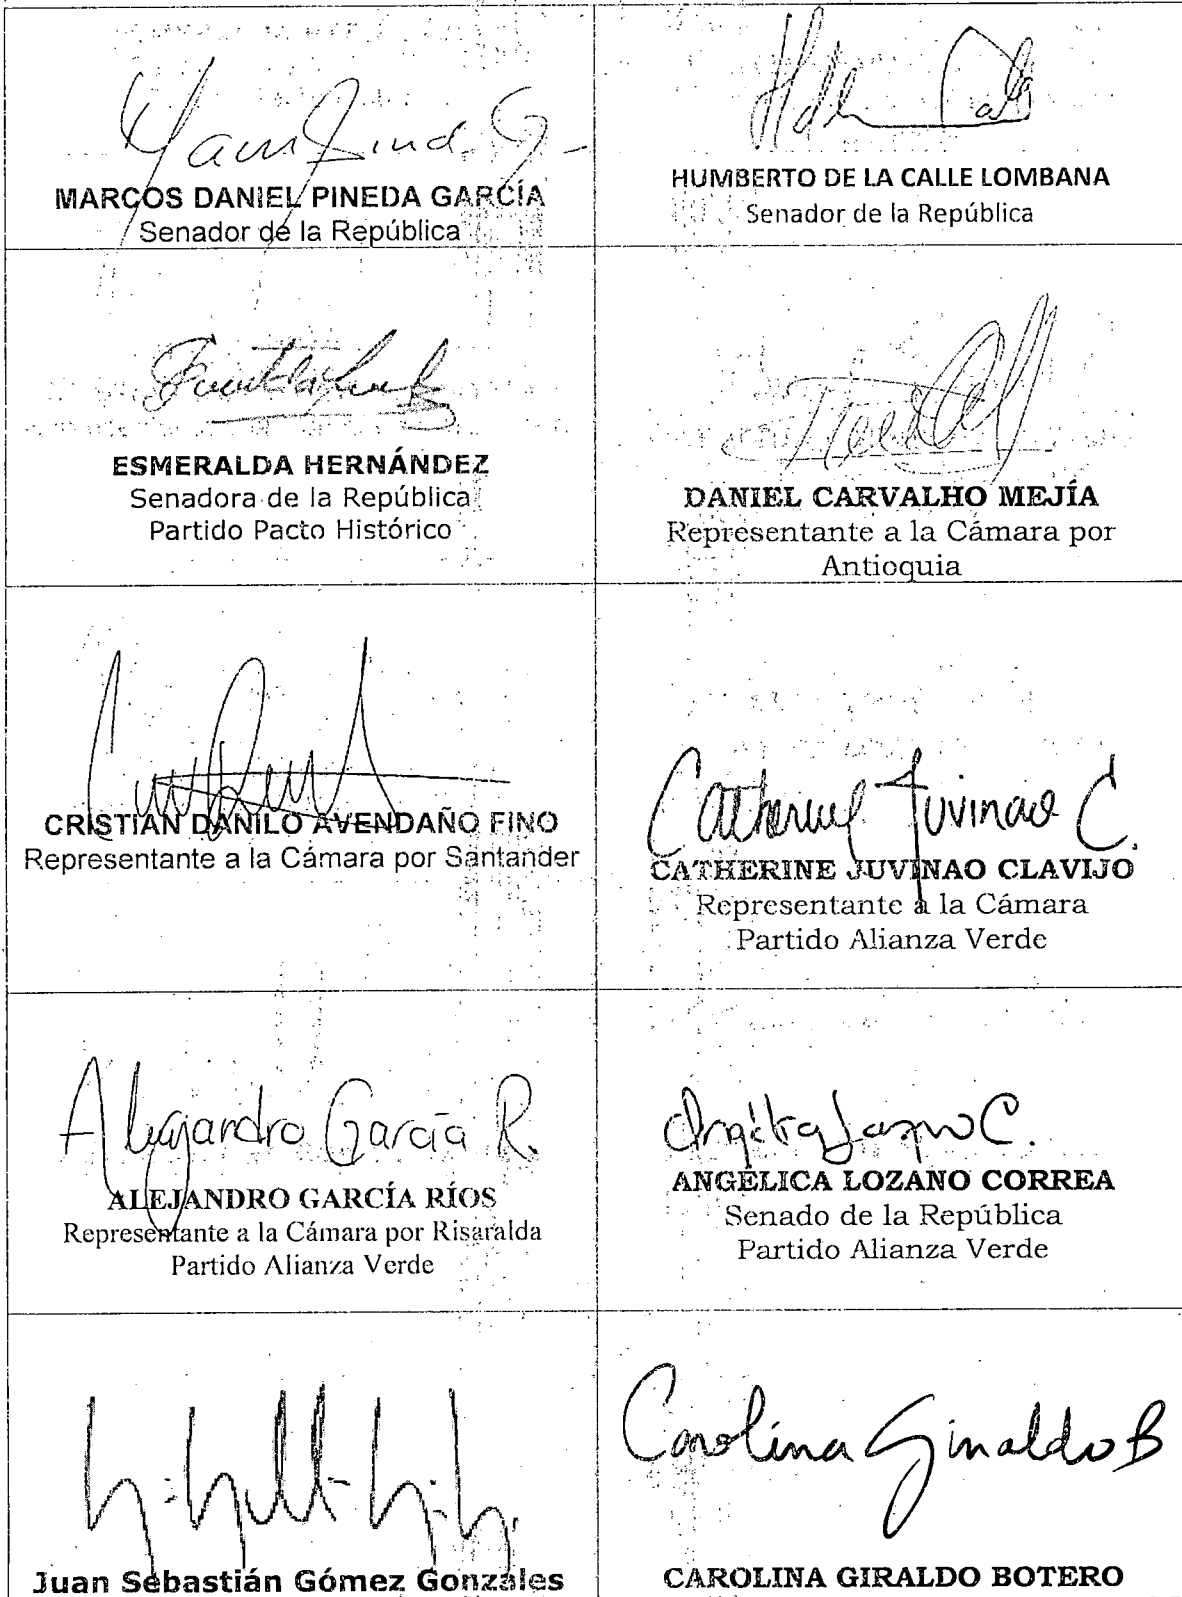 MARCOS DANIEL PINEDA GARCÍA
Senador de la República
HUMBERTO DE LA CALLE LOMBANA
Senador de la República
ESMERALDA HERNÁNDEZ
Senadora de la República
Partido Pacto Histórico
DANIEL CARVALHO MEJÍA
Representante a la Cámara por
Antioquia
CRISTIAN DANILO AVENDAÑO FINO
Representante a la Cámara por Santander
Catherine Juvinao C.
CATHERINE JUVINAO CLAVIJO
Representante a la Cámara
Partido Alianza Verde
Alejandro García R.
ALEJANDRO GARCÍA RÍOS
Representante a la Cámara por Risaralda
Partido Alianza Verde
Angélica Lozano C.
ANGÉLICA LOZANO CORREA
Senado de la República
Partido Alianza Verde
Juan Sebastián Gómez Gonzáles
Carolina Giraldo B
CAROLINA GIRALDO BOTERO